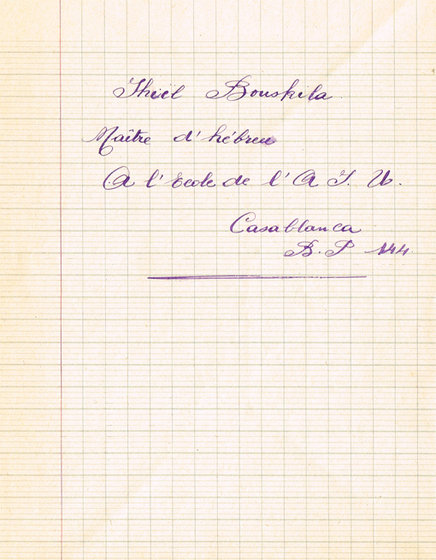 Ihiel Bouskila.
Maître d'hébreu
A l'Ecole de l'A I. U.
Casablanca
B. P 144